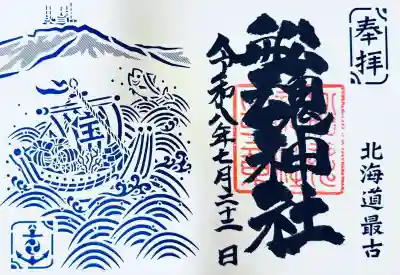 奉拝
北海道最古
船魂神社
令和八年七月二十二日
宝